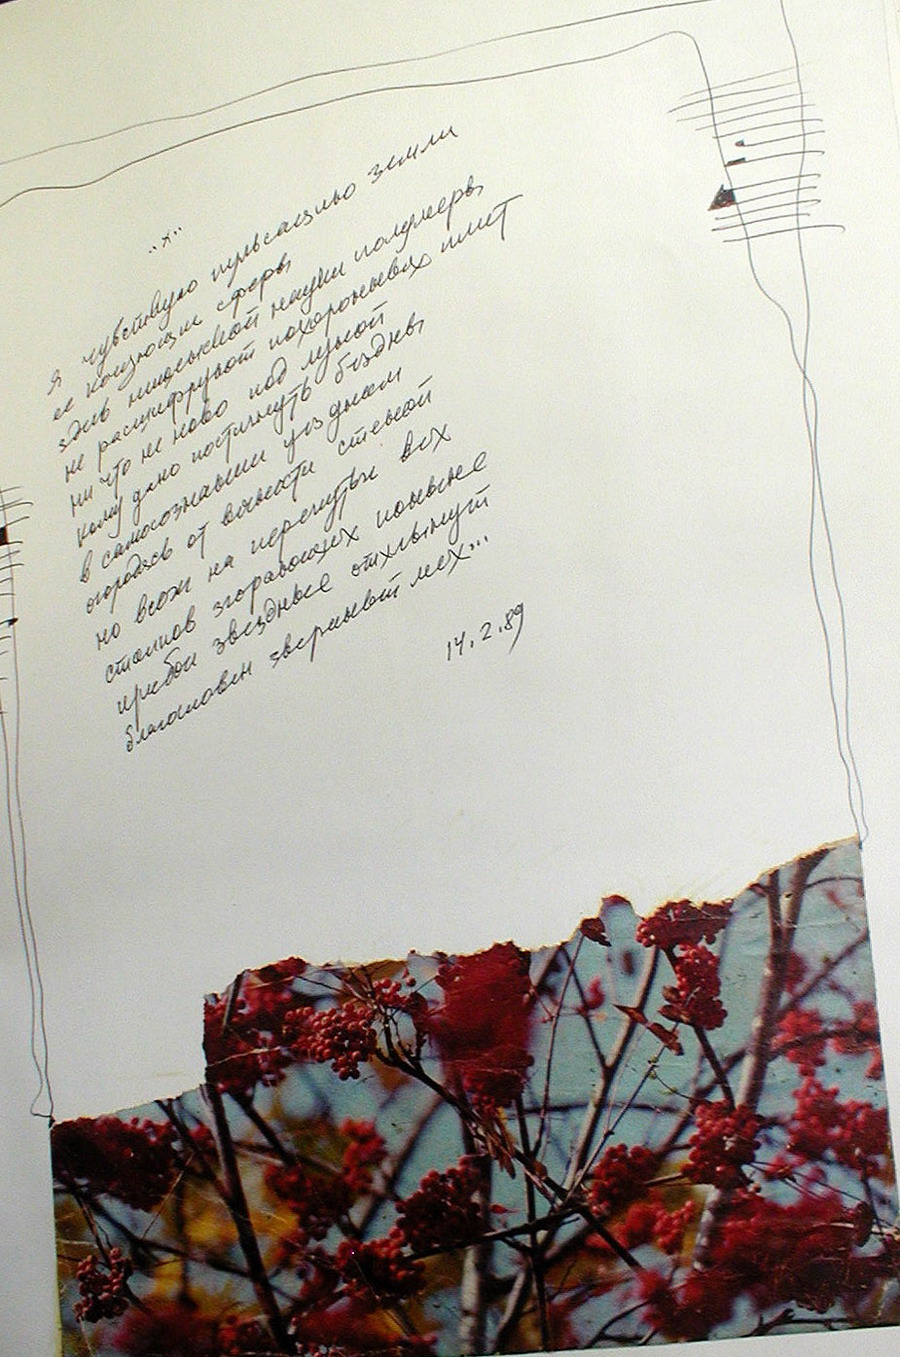 "*"
Я чувствую пульсацию земли
ее поющие сферы
здесь никакой науки полумеры
не расшифруют похоронных плит
ни что не ново под луной
кому дано постигнуть бездны
в самосознании уездном
огородясь от вечности стеной
но всюж на перепутьи вех
столпов сгорающих поныне
прибои звездные отхлынут
благословен звериный мех...
14.2.89